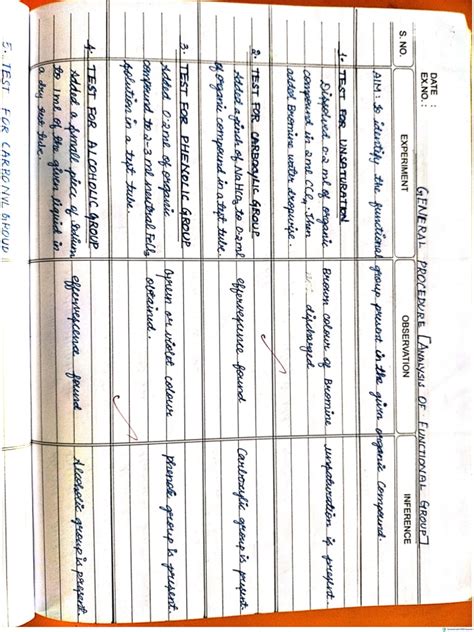 DATE :
EX.NO.:
GENERAL PROCEDURE [ANALYSIS OF FUNCTIONAL GROUP]
S. NO.
EXPERIMENT
OBSERVATION
INFERENCE
AIM: to identify the functional group present in the given organic compound.
1. TEST FOR UNSATURATION
Dissolved 0.2 ml of organic
compound in 2ml CCl4, then
added Bromine water dropwise.
Brown colour of Bromine
discharged
unsaturation is present.
2. TEST FOR CARBOXYLIC GROUP
Added a pinch of NaHCO3 to 0.2ml
of organic compound in a test tube.
effervescence found
Carboxylic group is present.
3. TEST FOR PHENOLIC GROUP
Added 0.2ml of organic
compound to 2-3 ml neutral FeCl3
solution in a test tube.
Green or violet colour
obtained.
phenolic group is present.
4. TEST FOR ALCOHOLIC GROUP
Added a small piece of Sodium
to 1ml of the given liquid in
a dry test tube.
effervescence found
Alcoholic group is present.
5. TEST FOR CARBONYL GROUP